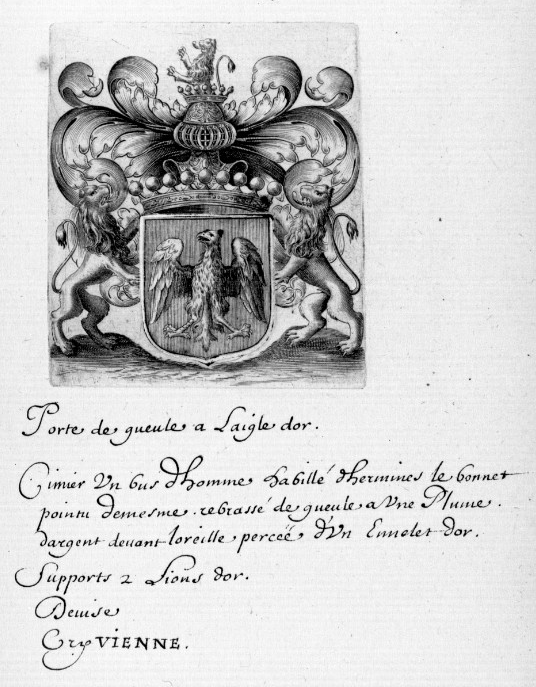 Porte de gueule a Laigle dor.
Cimier Vn bus dhomme habillé dhermines le bonnet
pointu demesme. rebrassé de gueule a Vne Plume.
dargent deuant loreille percéé dVn Ennelet dor.
Supports 2 Lions dor.
Deuise
Cry VIENNE.